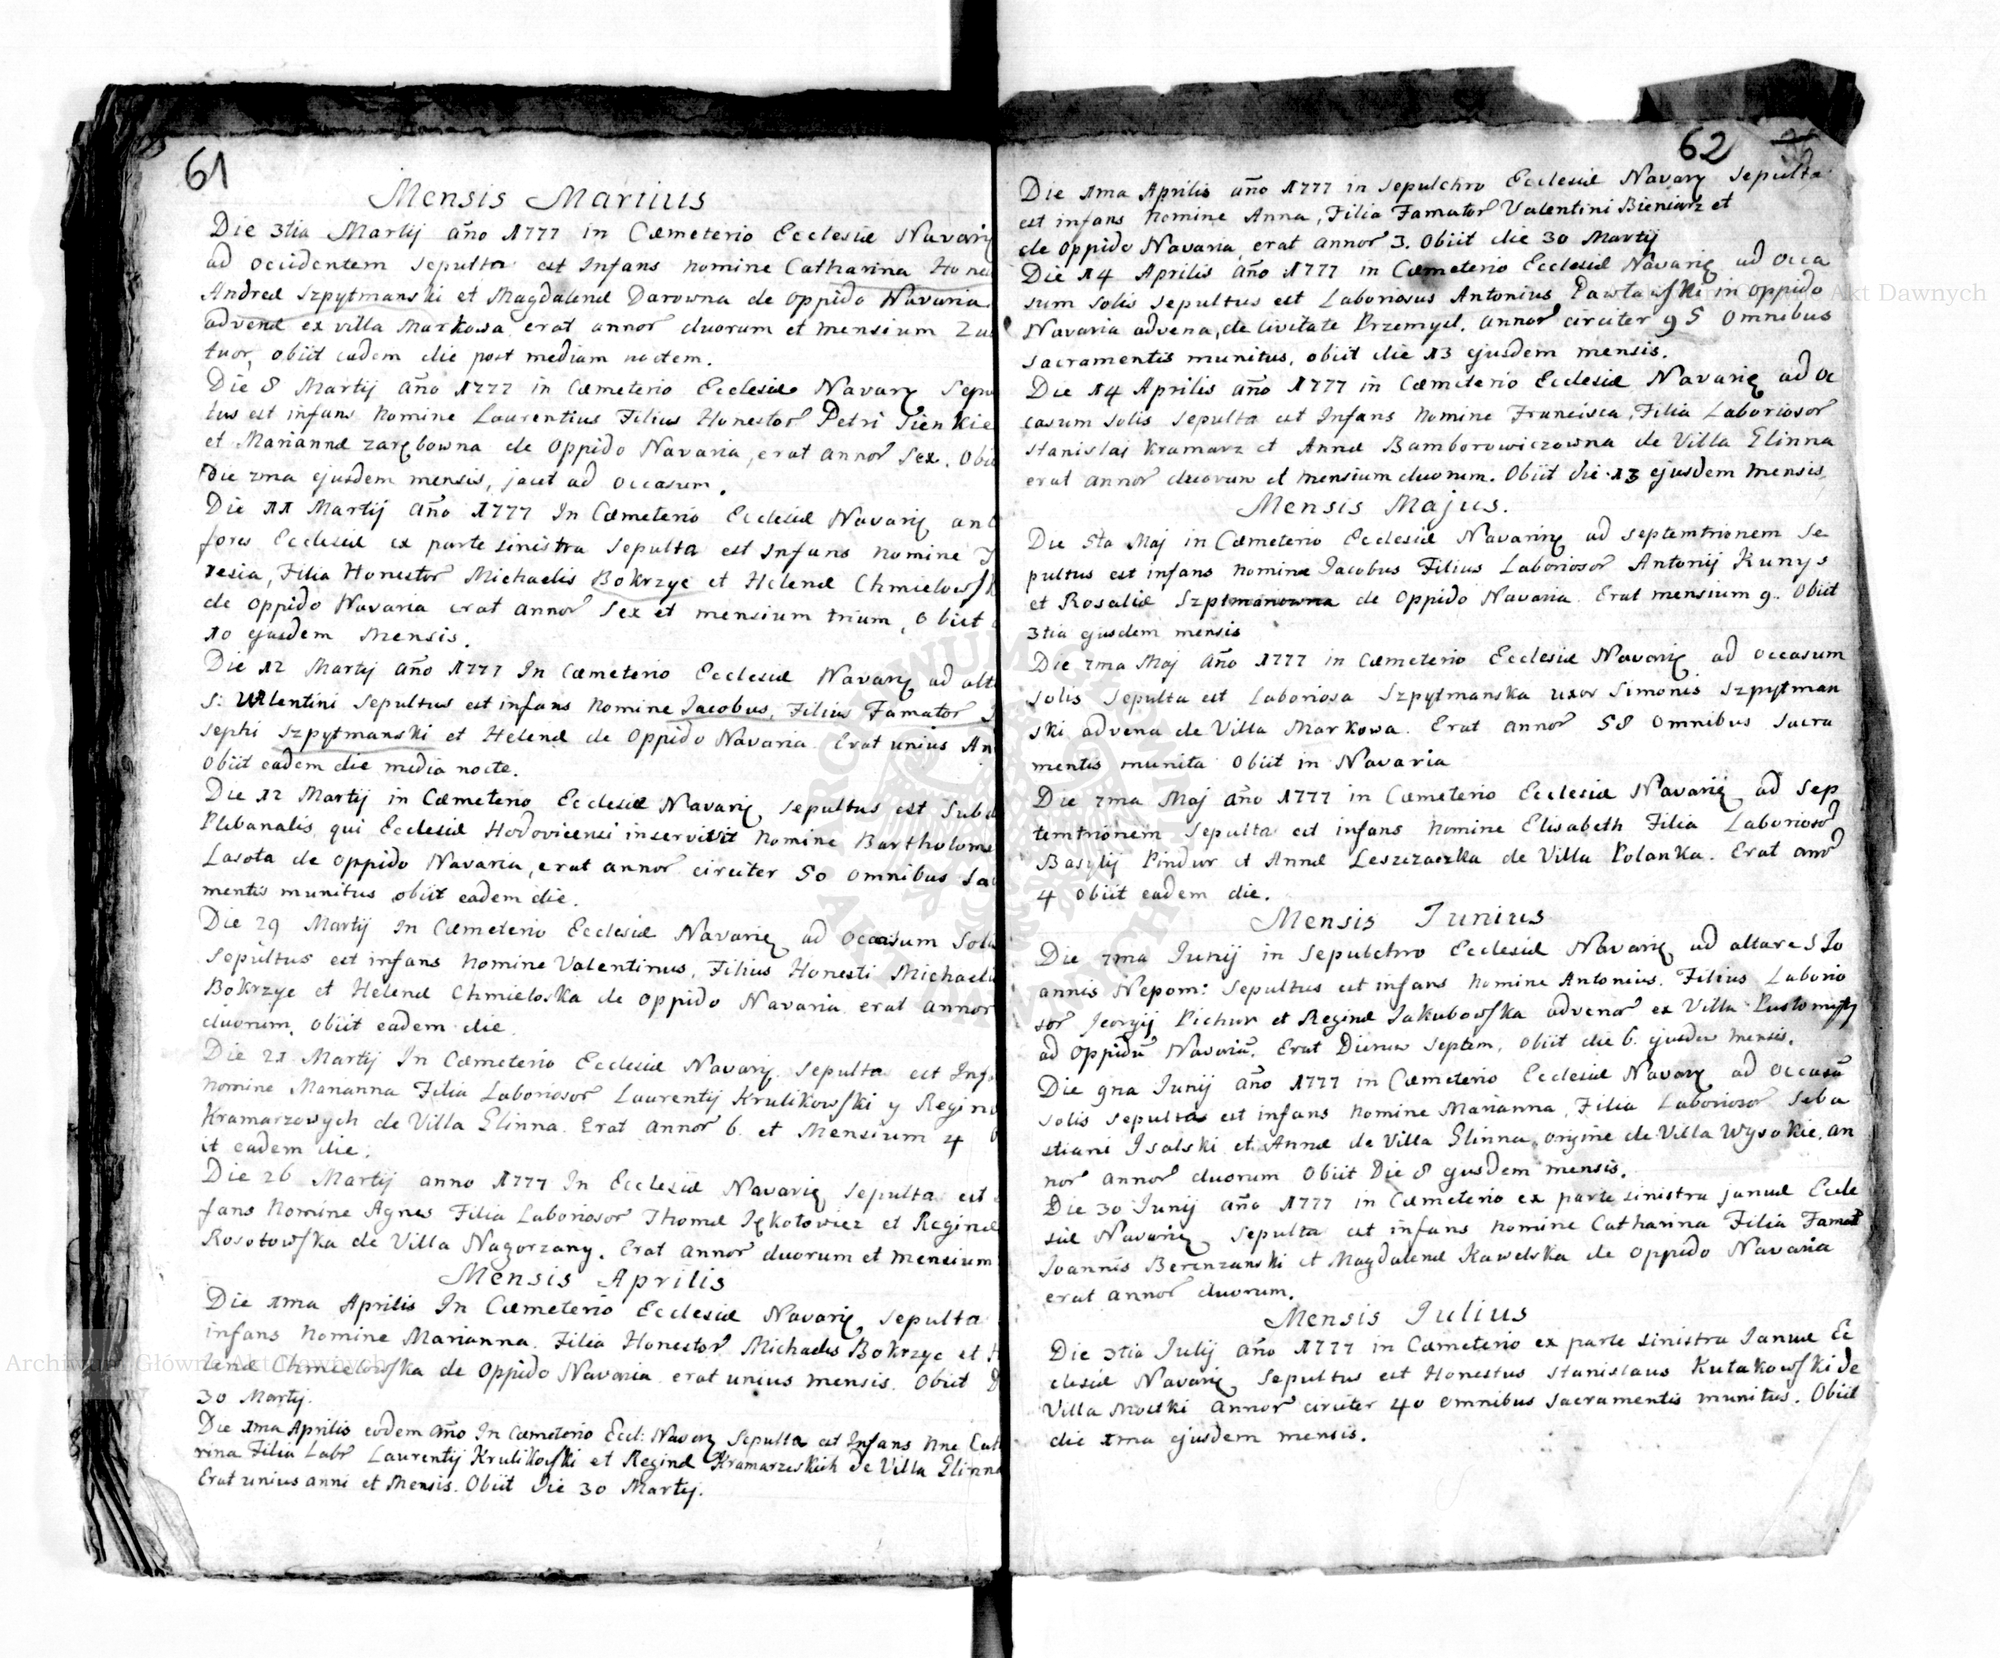 61
Mensis Martius
Die 3tia Martij año 1777 in Cæmeterio Ecclesiæ Navariȩ
ad occidentem sepulta est Infans nomine Catharina Hone
Andreæ Szpytmanski et Magdalenæ Darowna de oppido Navaria
advenæ ex villa Markowa erat annor duorum et mensium
tuor, obiit eadem die post mediam noctem.
Die 8 Martij año 1777 in Cæmeterio Ecclesiæ Navarȩ Sepu
tus est infans nomine Laurentius Filius Honestor Petri Pienkie
et Mariannæ Zarȩbowna de Oppido Navaria, erat annor Sex. Obii
Die 7ma ejusdem mensis, jacet ad Occasum.
Die 11 Martij año 1777 In Cæmeterio Ecclesiæ Navariȩ an
fores Ecclesiæ ex parte sinistra sepulta est Infans nomine
resia, Filia Honestor Michaelis Bokrzyc et Helenæ Chmielowsk
de Oppido Navaria erat annor Sex et mensium trium, Obiit
10 ejusdem Mensis.
Die 12 Martij año 1777 In Cæmeterio Ecclesiæ Navarȩ ad alt
S: Valentini sepultus est infans nomine Jacobus, Filius Famator
sephi Szpytmanski et Helenæ de Oppido Navaria Erat unius An
Obiit eadem die media nocte.
Die 12 Martij in Cæmeterio Ecclesiæ Navariȩ sepultus est Subd
Plebanalis qui Ecclesiæ Hodovicensi inservivit nomine Bartholome
Lasota de Oppido Navaria, erat annor circiter 50 omnibus Sac
mentis munitus obiit eadem die.
Die 29 Martij In Cæmeterio Ecclesiæ Navariȩ ad Occasum Solis
sepultus est infans nomine Valentinus, Filius Honesti Michaelis
Bokrzyc et Helenæ Chmieloska de Oppido Navaria erat annor
duorum. Obiit eadem die.
Die 21 Martij In Cæmeterio Ecclesiæ Navarȩ. sepulta est Inf
nomine Marianna Filia Laboriosor Laurentij Krulikowski y Regin
Kramarzowych de Villa Glinna. Erat Annor 6 et Mensium 4
it eadem die.
Die 26 Martij anno 1777 In Ecclesiæ Navariȩ sepulta est
fans nomine Agnes Filia Laboriosor Thomæ et Reginæ
Rosotowska de Villa Nagorzany. Erat Annor duorum et mensium
Mensis Aprilis
Die 1ma Aprilis In Cæmeterio Ecclesiæ Navariȩ sepulta
infans nomine Marianna. Filia Honestor Michaelis Bokrzyc et H
lenæ Chmielowska de Oppido Navaria erat unius mensis. Obiit D
30 Martij.
Die 1ma Aprilis eodem año In Cæmeterio Eccl: Navarȩ sepulta est Infans nne Cat
rina Filia Labr Laurentij Krulikowski et Reginæ Kramarzeskich de Villa Glinna
Erat unius anni et Mensis. Obiit Die 30 Martij.
62
Die 1ma Aprilis año 1777 in sepulchro Ecclesiæ Navarȩ sepulta
est infans nomine Anna, Filia Famator Valentini Bieniarz et
de Oppido Navaria, erat annor 3. Obiit die 30 Martij
Die 14 Aprilis año 1777 in Cæmeterio Ecclesiæ Navariȩ ad occa
sum solis sepultus est Laboriosus Antonius Pawłowski in Oppido
Navaria advena, de Civitate Przemysl. Annor circiter 95 Omnibus
Sacramentis munitus, obiit die 13 ejusdem mensis.
Die 14 Aprilis año 1777 in Cæmeterio Ecclesiæ Navariȩ ad oc
casum solis sepulta est Infans nomine Francisca, Filia Laboriosor
Stanislai Kramarz et Annæ Bamborowiczowna de Villa Glinna
erat annor duorum et mensium duorum. Obiit die 13 ejusdem Mensis.
Mensis Majus.
Die 5ta Maj in Cæmeterio Ecclesiæ Navariȩ ad septemtrionem se
pultus est infans nomine Jacobus Filius Laboriosor Antonij Kunys
et Rosaliæ Szpimanowna de Oppido Navaria. Erat mensium 9. Obiit
3tia ejusdem mensis
Die 7ma Maj Año 1777 in Cæmeterio Ecclesiæ Navariȩ ad Occasum
solis sepulta est Laboriosa Szpytmanska uxor Simonis Szpytman
ski advena de Villa Markowa. Erat Annor 58 Omnibus Sacra
mentis munita Obiit in Navaria
Die 7ma Maj Año 1777 in Cæmeterio Ecclesiæ Navariȩ ad Sep
temtrionem sepulta est infans nomine Elisabeth Filia Laboriosor
Basylij Pindur et Annæ Leszczaczka de Villa Polanka. Erat anor
4 Obiit eadem die.
Mensis Junius
Die 7ma Junij in sepulchro Ecclesiæ Navariȩ ad altare S Jo
annis Nepom: sepultus est infans nomine Antonius. Filius Laborio
sor Jeorgij Pichur et Reginæ Jakubowska advenor ex Villa Pustomyty
ad Oppidũ Navariã. Erat Dierum septem, Obiit die 6. ejusdem mensis.
Die 9na Junij año 1777 in Cæmeterio Ecclesiæ Navarȩ ad Occasũ
solis sepulta est infans nomine Marianna, Filia Laboriosor Seba
stiani Jsalski et Annæ de Villa Glinna origine de Villa Wysokie, an
nor annor duorum Obiit Die 8 ejusdem mensis.
Die 30 Junij año 1777 in Cæmeterio ex parte sinistra januæ Eccle
siæ Navariȩ sepulta est infans nomine Catharina Filia Famat
Joannis Berenzanski et Magdalenæ Kawelska de Oppido Navaria
erat annor duorum.
Mensis Julius
Die 3tia Julij Año 1777 in Cæmeterio ex parte sinistra Januæ Ec
clesiæ Navariȩ sepultus est Honestus Stanislaus Kutakowski de
Villa Mostki annor circiter 40 omnibus sacramentis munitus. Obiit
die 1ma ejusdem mensis.